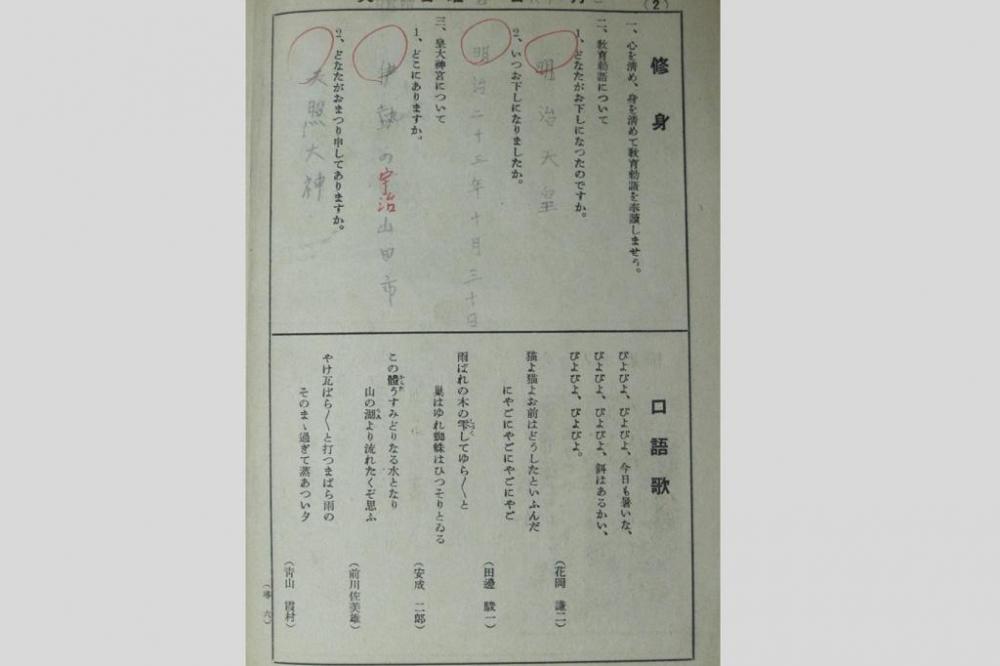 (2)
修身
一、心を淸め、身を淸めて敎育勅語を奉讀しませう。
二、敎育勅語について
1、どなたがお下しになつたのですか。
明治天皇
2、いつお下しになりましたか。
明治二十三年十月三十日
三、皇大神宮について
1、どこにありますか。
伊勢の宇治山田市
2、どなたがおまつり申してありますか。
天照大神
口語歌
ぴよぴよ、ぴよぴよ、今日も暑いな、
ぴよぴよ、ぴよぴよ、餌はあるかい、
ぴよぴよ、ぴよぴよ。
(花岡 謙二)
猫よ猫よお前はどうしたといふんだ
にやごにやごにやごにやご
(田邊 駿一)
雨ばれの木の雫してゆら〱と
巢はゆれ蜘蛛はひつそりとゐる
(安成 二郎)
この體うすみどりなる水となり
山の湖より流れたくぞ思ふ
(前川佐美雄)
やけ瓦ばら〱と打つまばら雨の
そのまゝ過ぎて蒸あつい夕
(靑山 霞村)